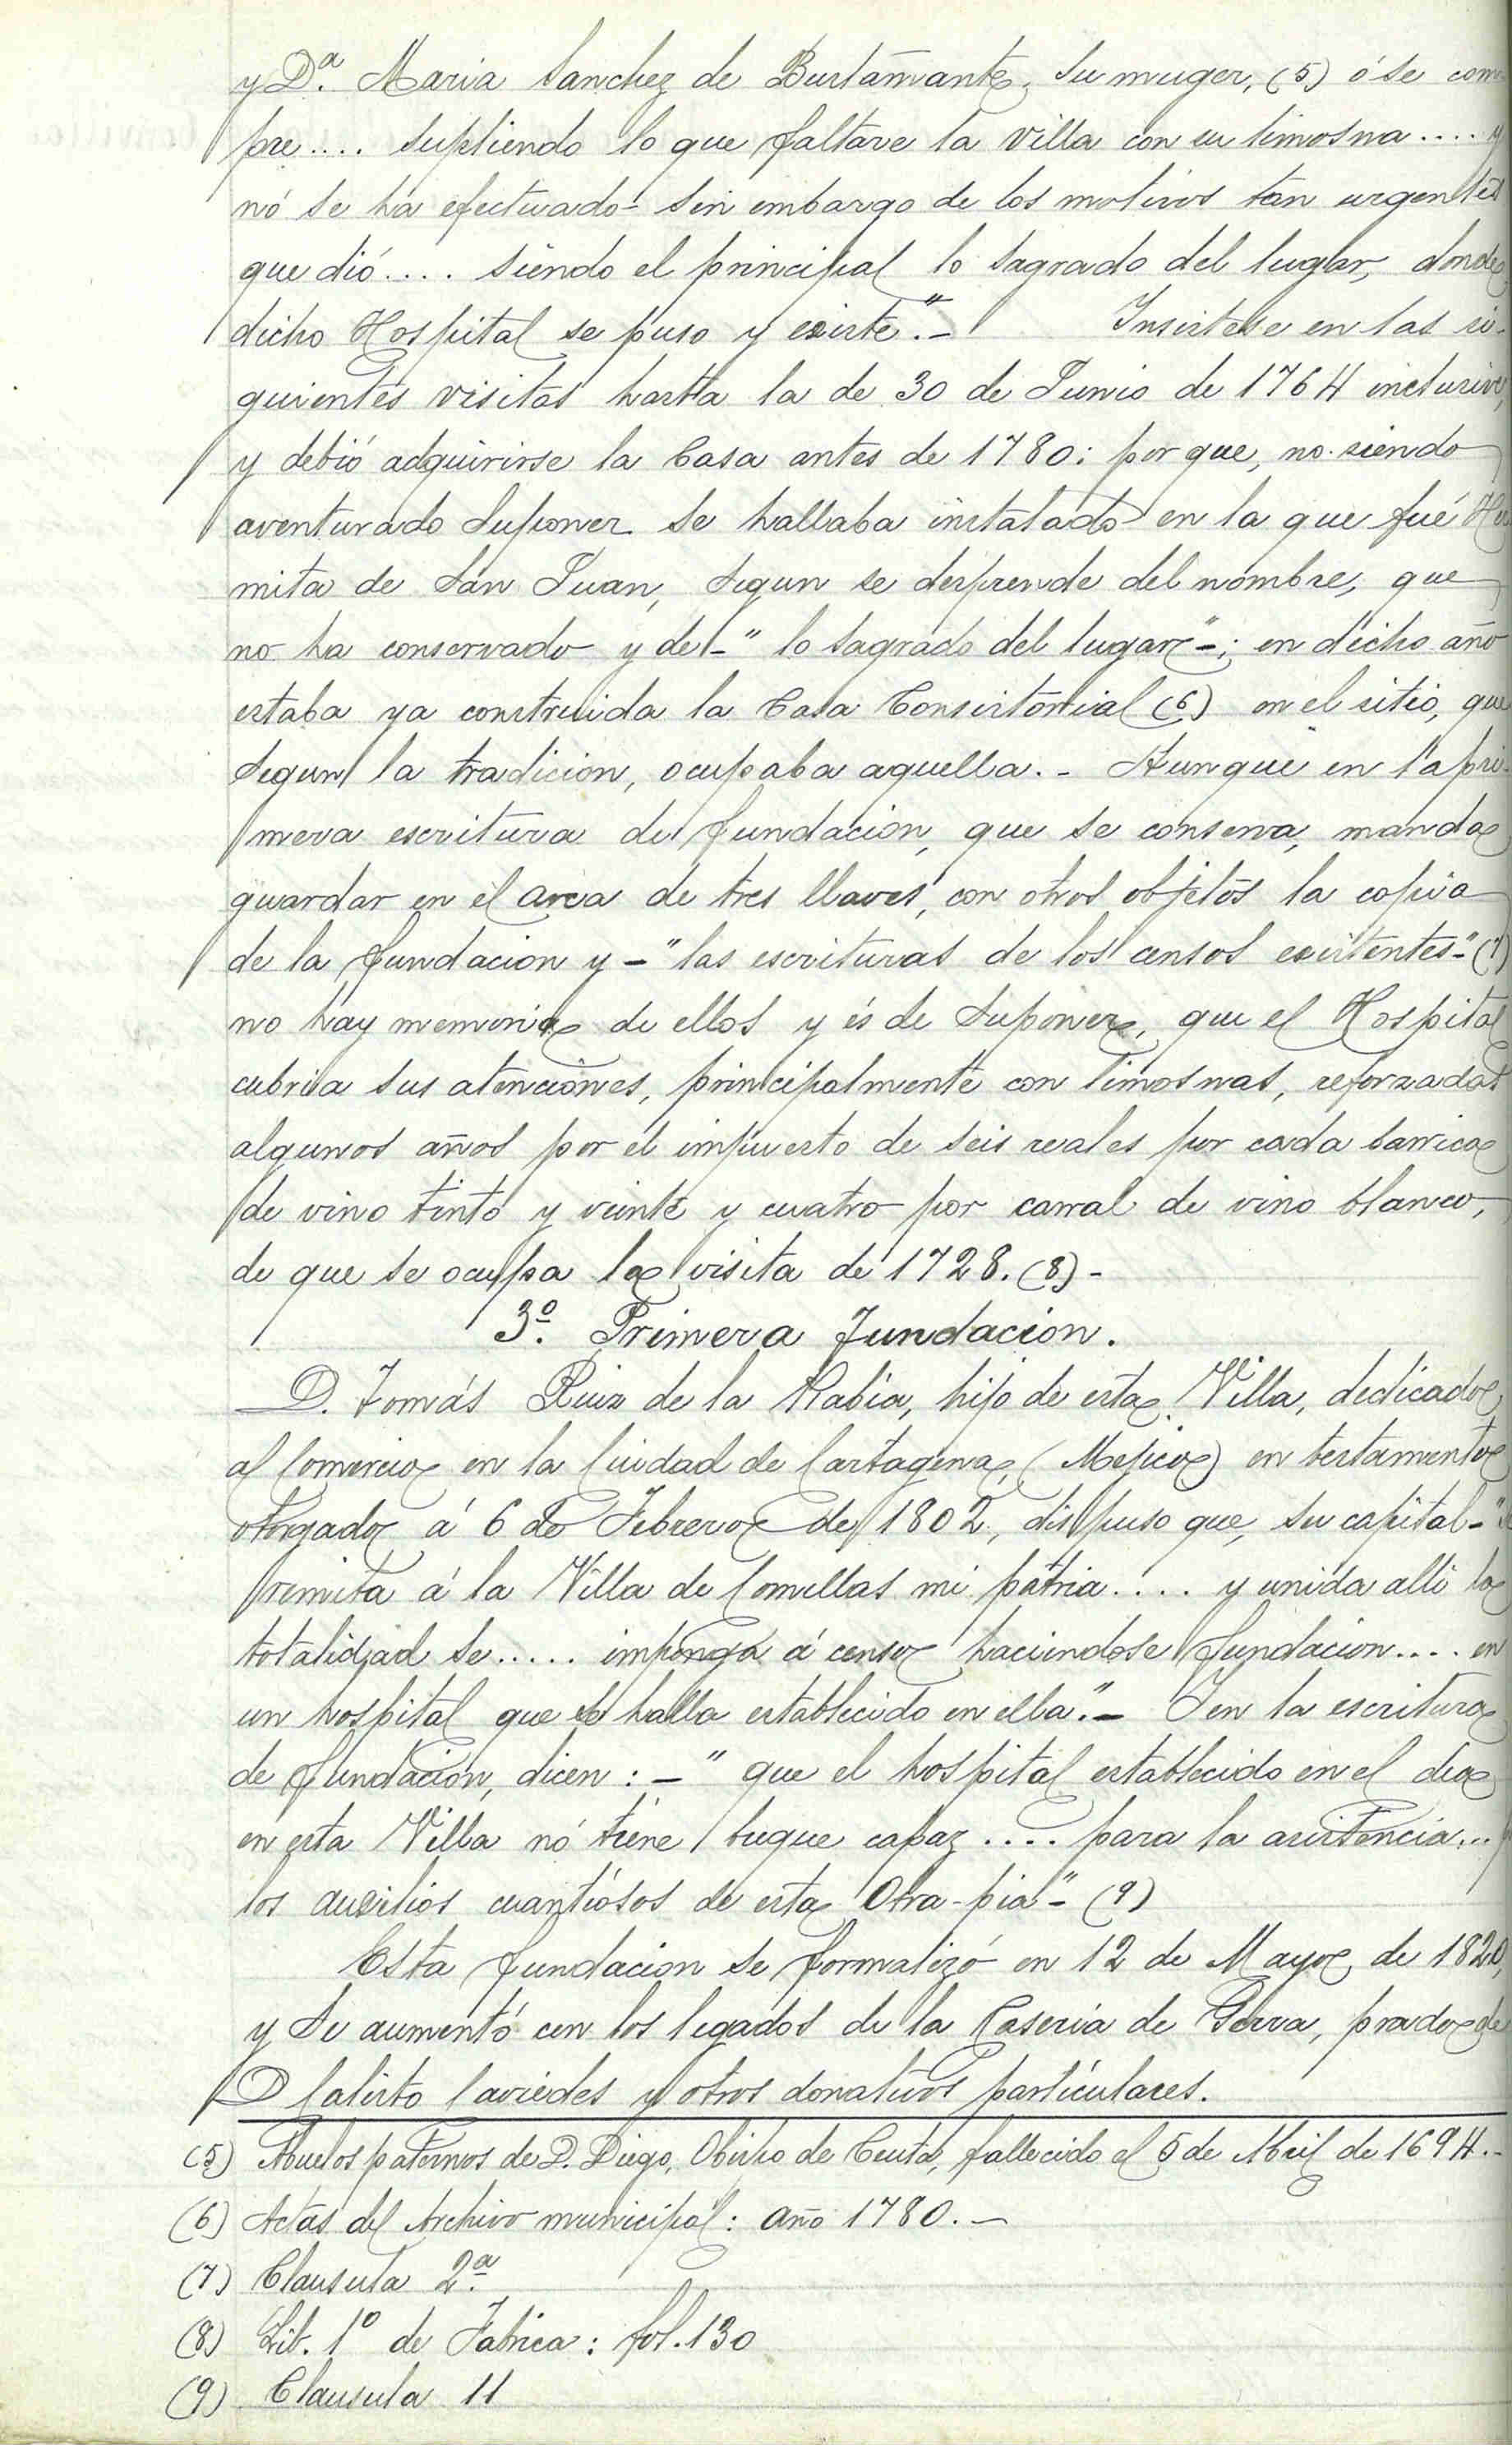 y D.ª Maria Sanchez de Bustamante, su muger, (5) ó se com
pre.... supliendo lo que faltare la villa con su limosna.... y
nó se ha efectuado sin embargo de los motivos tan urgentes
que dió.... siendo el principal lo sagrado del lugar, donde
dicho Hospital se puso y existe".- Insistese en las si-
guientes visitas hasta la de 30 de Junio de 1764 inclusive,
y debió adquirirse la Casa antes de 1780: por que, no siendo
aventurado suponer se hallaba instalado en la que fué Her
mita de San Juan, segun se desprende del nombre, que
no ha conservado y del-"lo sagrado del lugar"-; en dicho año
estaba ya construida la Casa Consistorial (6) en el sitio, que
segun la tradicion, ocupaba aquella.- Aunque en la pri-
mera escritura de fundacion, que se conserva, manda
guardar en el arca de tres llaves, con otros objetos la copia
de la fundacion y -"las escrituras de los censos existentes"- (7)
no hay memoria de ellos y és de suponer, que el Hospital
cubria sus atenciones, principalmente con limosnas, reforzadas
algunos años por el impuesto de seis reales por cada barrica
de vino tinto y veinte y cuatro por carral de vino blanco,
de que se ocupa la visita de 1728. (8)-
3º. Primera Fundacion.
D. Tomás Ruiz de la Rabia, hijo de esta Villa, dedicado
al Comercio en la Ciudad de Cartagena, (Mejico) en testamento
otorgado á 6 de Febrero de 1802, dispuso que, su capital-"se
remita á la Villa de Comillas mi pátria.... y unida alli la
totalidad se..... imponga á censo haciendose fundacion.... en
un hospital que se halla establecido en ella".- Y en la escritura
de fundación, dicen:-"que el hospital establecido en el dia
en esta Villa nó tiene buque capaz.... para la asistencia... y
los auxilios cuantiosos de esta Obra-pia"- (9)
Esta fundacion se formalizó en 12 de Mayo de 1820,
y se aumentó con los legados de la Caseria de Gerra, prado de
D Calisto Caviedes y otros donativos particulares.
(5) Abuelos paternos de D. Diego, Obispo de Ceuta, fallecido el 5 de Abril de 1694.-
(6) Actas del Archivo municipal: año 1780.-
(7) Clausula 2.ª
(8) Lib. 1º de Fabrica: fol. 130
(9) Clausula 11